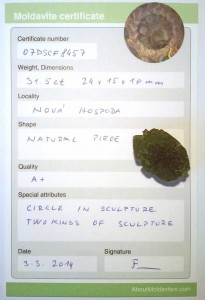 Moldavite certificate
Certificate number
07DSCF8457
Weight, Dimensions
31.5ct 24x15x10mm
Locality
NOVÁ HOSPODA
Shape
NATURAL PIECE
Quality
A+
Special attributes
CIRCLE IN SCULPTURE
TWO KINDS OF SCULPTURE
Date
Signature
3-3. 2014
AboutMoldavites.com